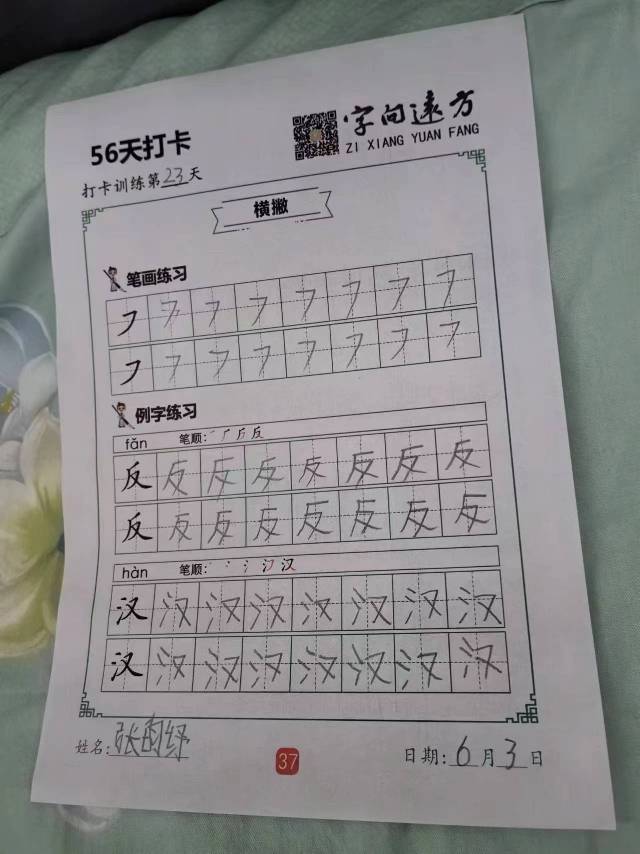 56天打卡
字向遠方
ZI XIANG YUAN FANG
打卡训练第23天
横撇
笔画练习
㇇ ㇇ ㇇ ㇇ ㇇ ㇇ ㇇ ㇇
㇇ ㇇ ㇇ ㇇ ㇇ ㇇ ㇇ ㇇
例字练习
fǎn 笔顺: 反
反 反 反 反 反 反 反 反
反 反 反 反 反 反 反 反
hàn 笔顺: 丶 冫 氵 汉 汉
汉 汉 汉 汉 汉 汉 汉 汉
汉 汉 汉 汉 汉 汉 汉 汉
姓名: 张韵纾
37
日期: 6月3日